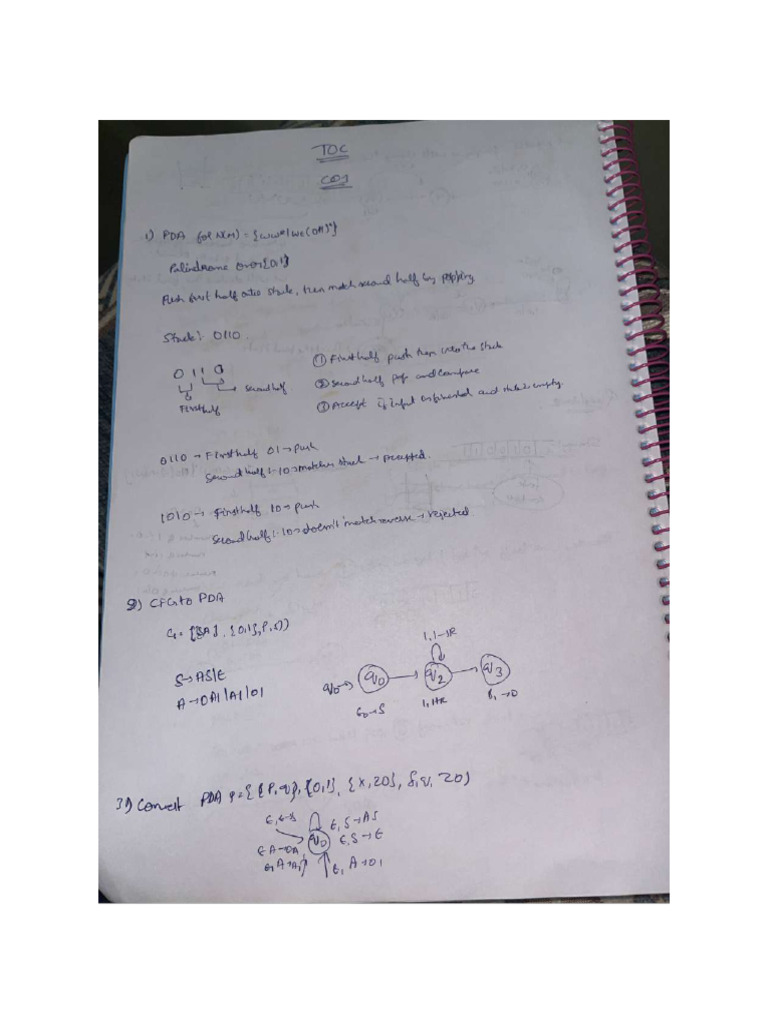 TOC
CO1
1) PDA for N(M) = {wwᴿ | wε(0+1)*}
Palindrome over {0,1}
Push first half onto stack, then match second half by popping
Stack:- 0110.
0 1 1 0
second half
First half
① First half push then into the stack
② second half pop and compare
③ Accept if Input is finished and stack is empty.
0110 → First half 01 → push
Second half:- 10 → matches stack → Accepted.
1010 → First half 10 → push
Second half:- 10 → doesn't match reverse → rejected
2) CFG to PDA
G = {{S,A}, {0,1}, P, S)}
S → AS|ε
A → 0A1|A1|01
q0 → q0 → q2 → q3
1,1→
ε → S
3) Convert PDA P = {{P,q}, {0,1}, {X,Z0}, δ, q, Z0)
ε, S → AS
ε, S → ε
q0
ε A → 0A
ε, A → 01